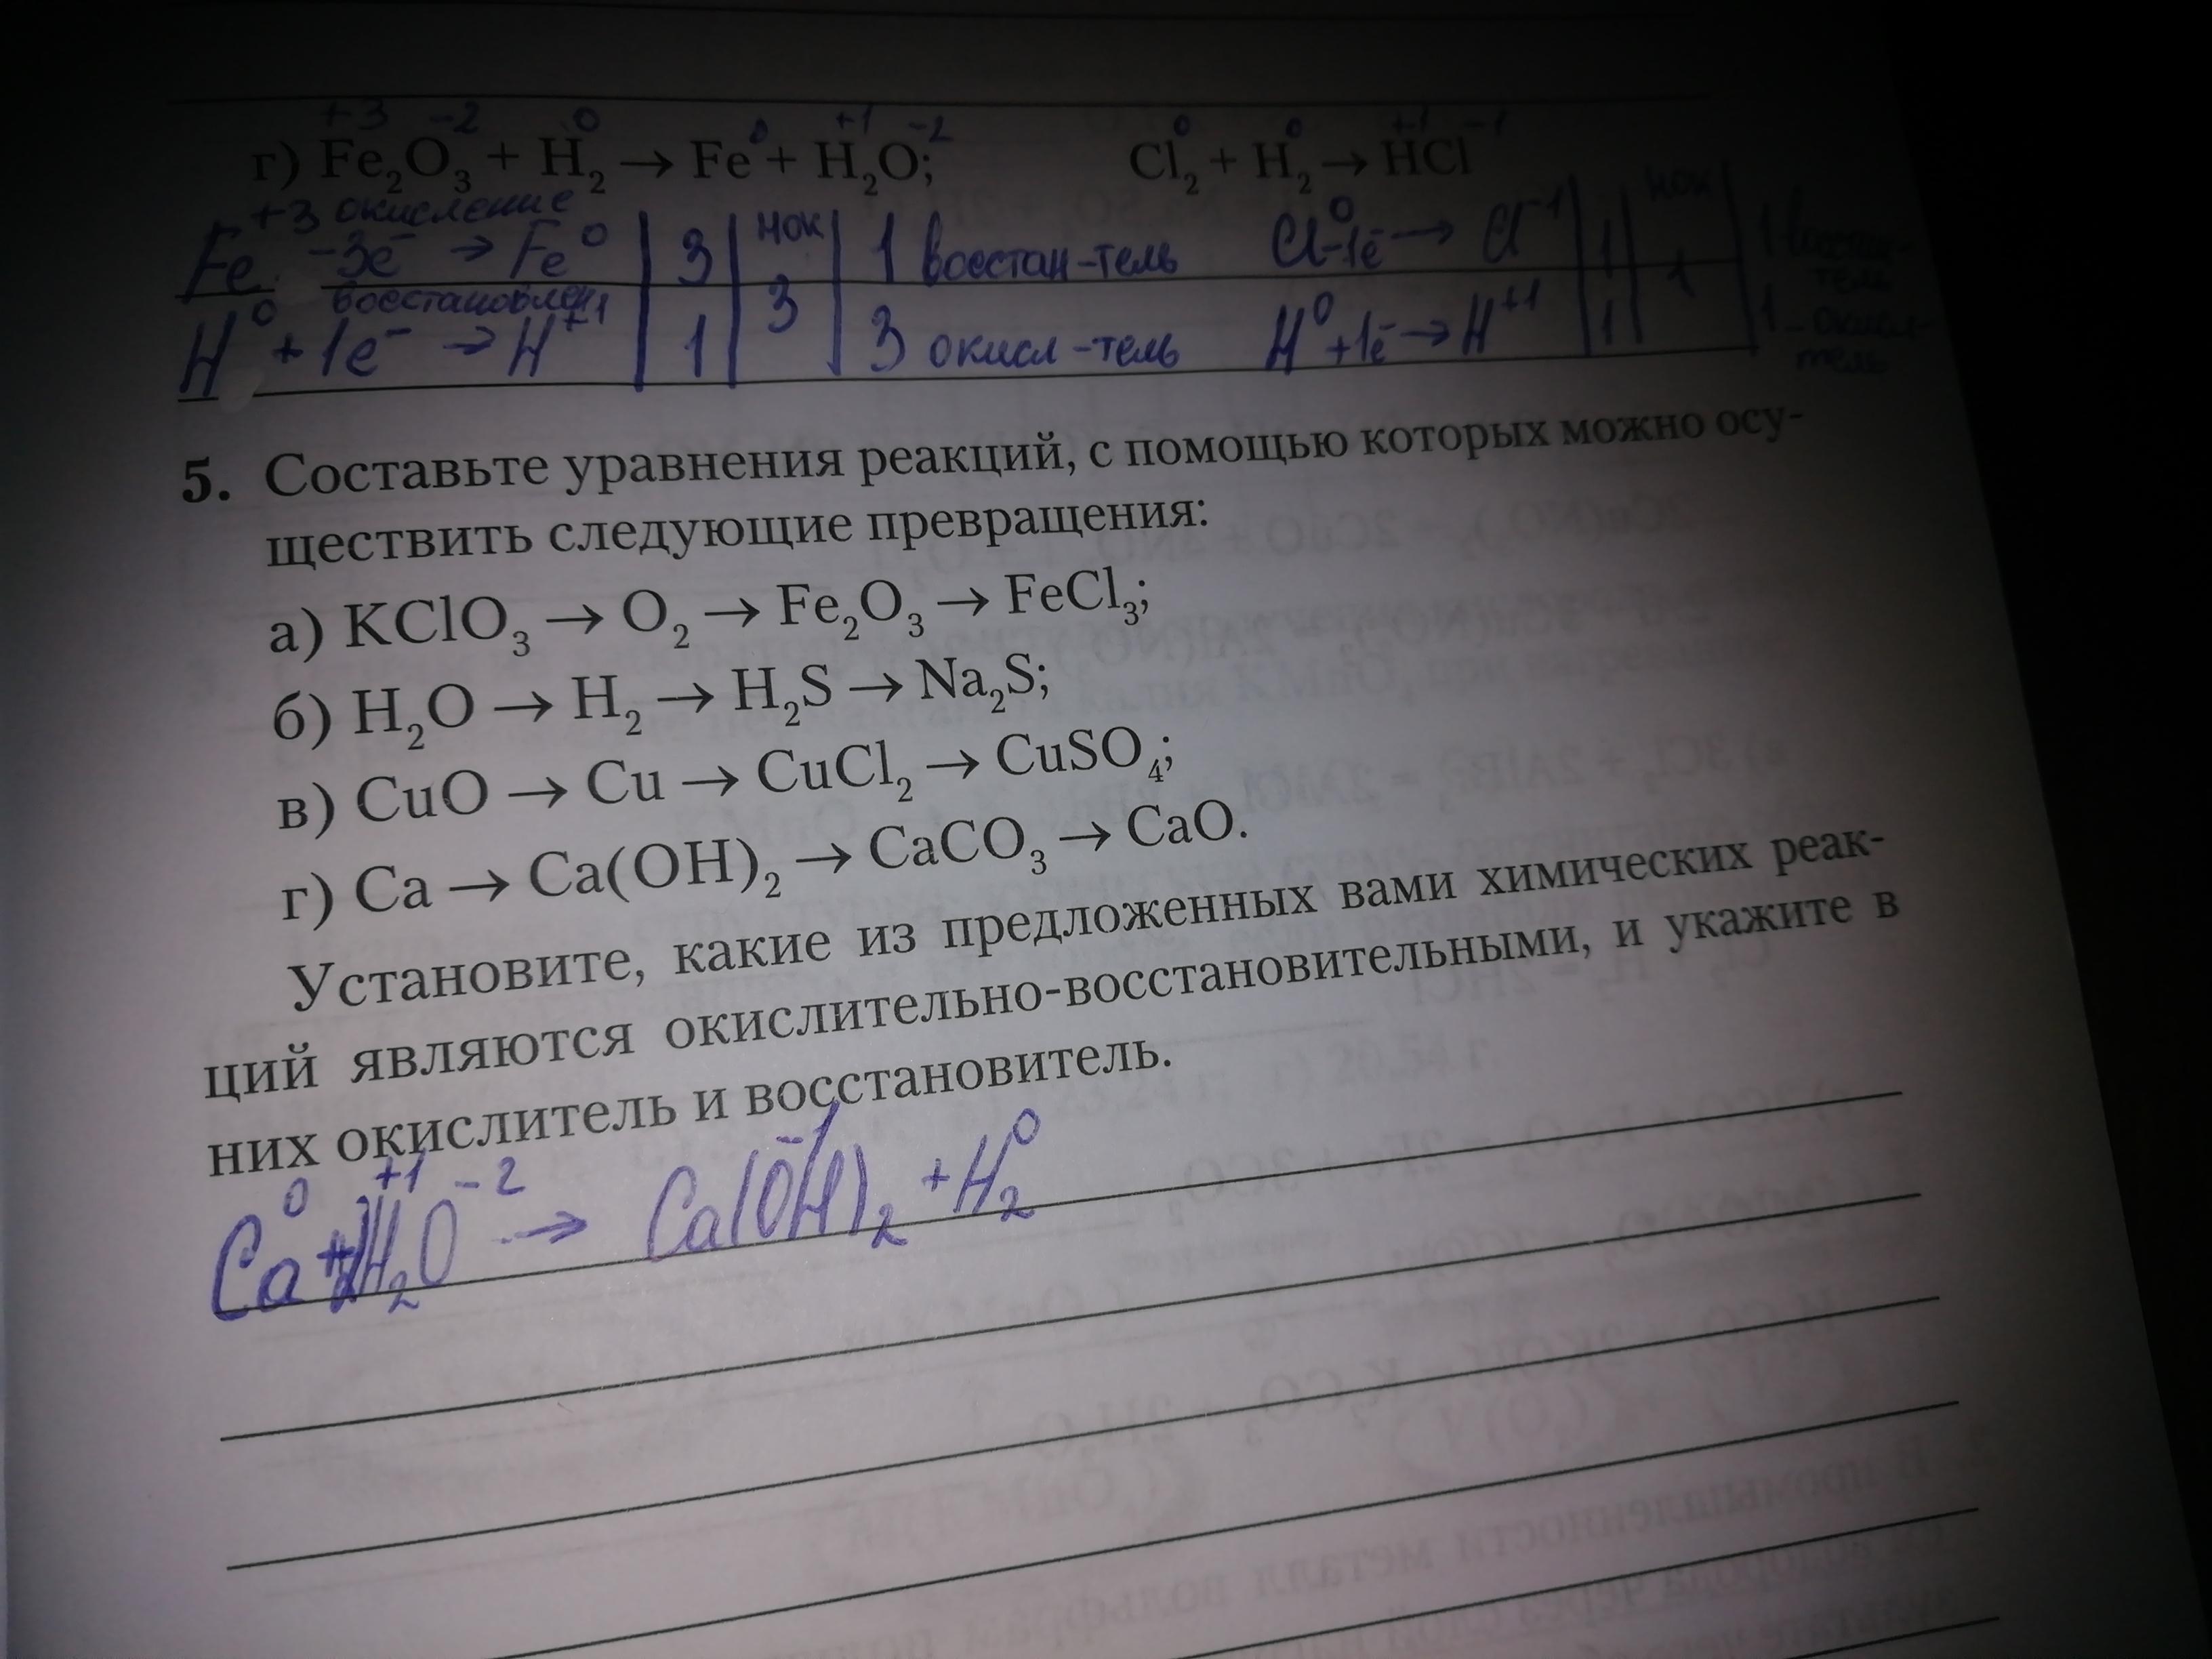 +3 -2 0 0 +1 -2 0 0 +1 -1
г) Fe₂O₃ + H₂ → Fe + H₂O; Cl₂ + H₂ → HCl
+3 окисление
Fe -3e⁻ → Fe⁰ | 3 | НОК | 1 восстан-тель Cl⁰ -1e⁻ → Cl⁻¹ | 1 | НОК | 1 восстан-тель
восстановлен
H⁰ + 1e⁻ → H⁺¹ | 1 | 3 | 3 окисл-тель H⁰ +1e⁻ → H⁺¹ | 1 | 1 | 1 - окисл-тель
5. Составьте уравнения реакций, с помощью которых можно осу-
ществить следующие превращения:
а) KClO₃ → O₂ → Fe₂O₃ → FeCl₃;
б) H₂O → H₂ → H₂S → Na₂S;
в) CuO → Cu → CuCl₂ → CuSO₄;
г) Ca → Ca(OH)₂ → CaCO₃ → CaO.
Установите, какие из предложенных вами химических реак-
ций являются окислительно-восстановительными, и укажите в
них окислитель и восстановитель.
0 +1 -2 -1 0
Ca + H₂O → Ca(OH)₂ + H₂